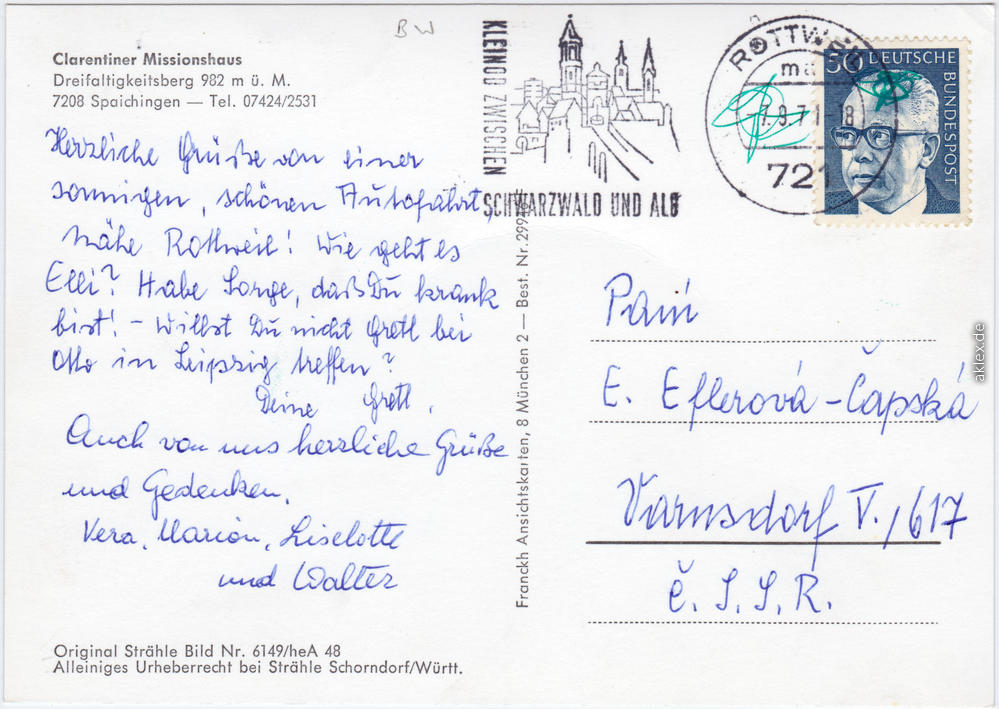 BW
Clarentiner Missionshaus
Dreifaltigkeitsberg 982 m ü. M.
7208 Spaichingen — Tel. 07424/2531
Herzliche Grüße von einer
sonnigen, schönen Autofahrt
Nähe Rottweil! Wie geht es
Elli? Habe Sorge, daß Du krank
bist! - Willst Du nicht Gretl bei
Otto in Leipzig treffen?
Deine Gretl.
Auch von uns herzliche Grüße
und Gedenken.
Vera, Marion, Liselotte
und Walter
Original Strähle Bild Nr. 6149/heA 48
Alleiniges Urheberrecht bei Strähle Schorndorf/Württ.
Franckh Ansichtskarten, 8 München 2 — Best. Nr.
KLEINOD ZWISCHEN
SCHWARZWALD UND ALB
ROTTWEIL
721
50 DEUTSCHE
BUNDESPOST
Paní
E. Eflerová-Čapská
Varnsdorf V./617
Č.S.S.R.
aklex.de